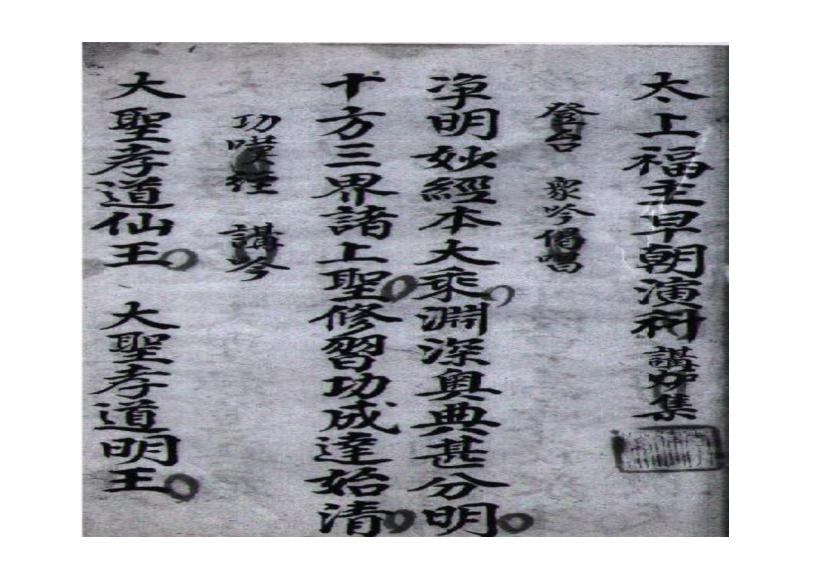 太上福主早朝演科 講妙集
登台 衆吟偈唱
净明妙經本大乘淵深奥典甚分明
十方三界諸上聖修習功成達始清
功 經 講吟
大聖孝道仙王 大聖孝道明王